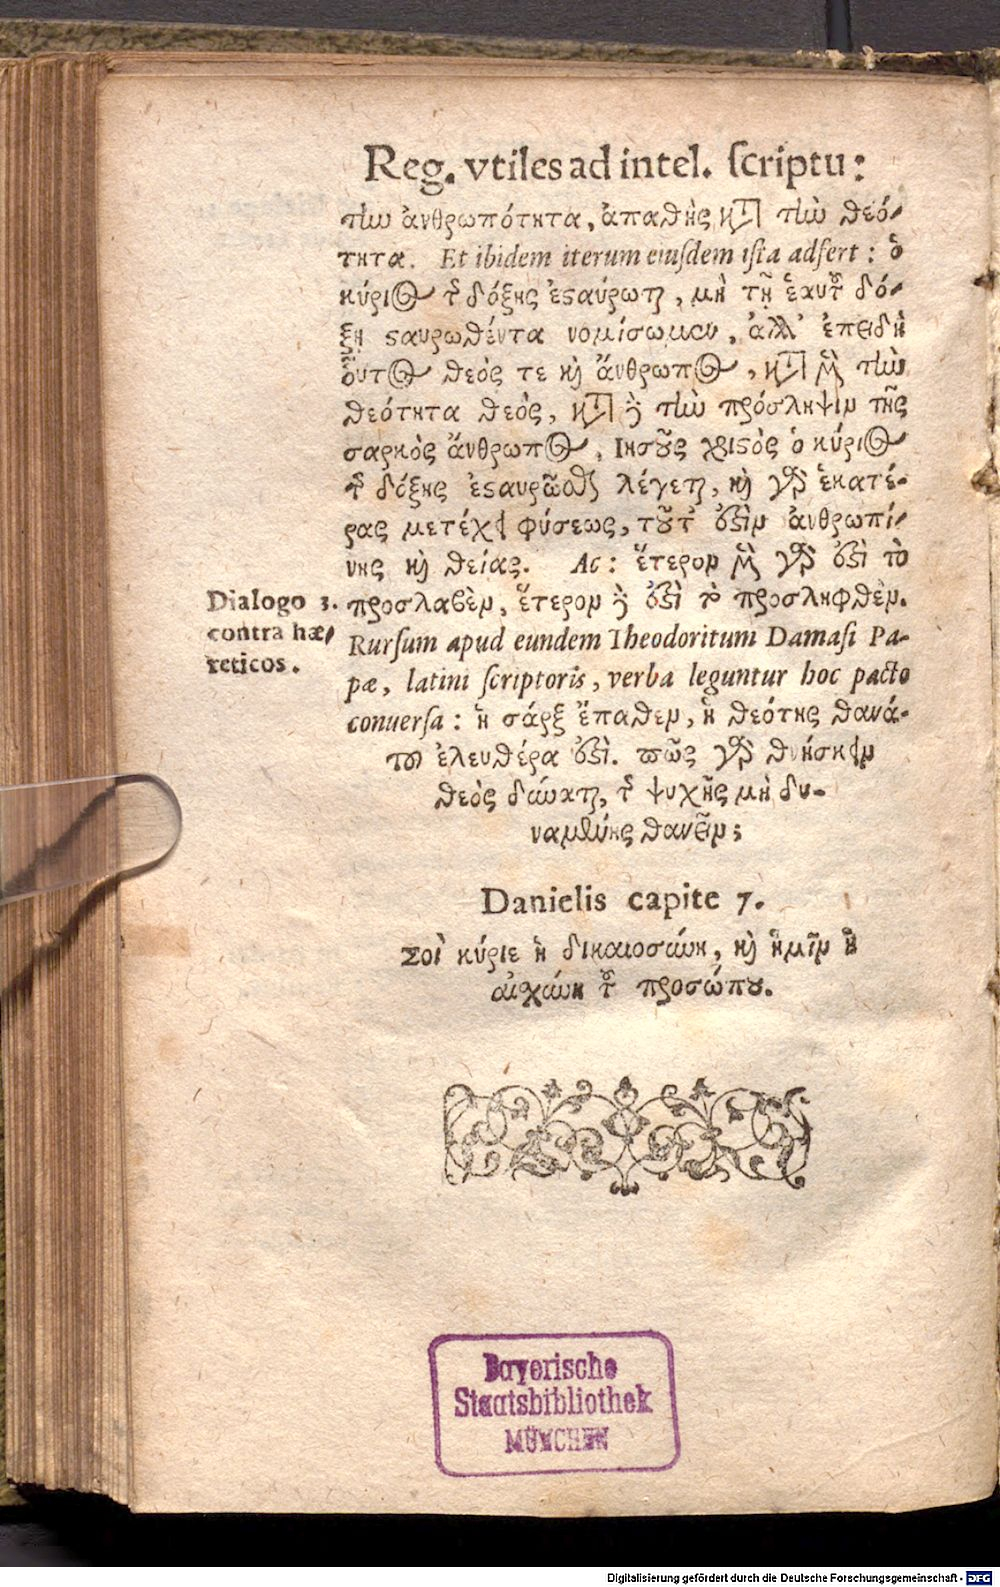 Reg. vtiles ad intel. ſcriptu:
τὴν ἀνθρωπότητα, ἀπαθὴς κατὰ τὴν θεό-
τητα. Et ibidem iterum eiuſdem iſta adfert: ὁ
κύριος τῆς δόξης ἐσταύρωται, μὴ τῇ ἑαυτοῦ δό-
ξῃ σταυρωθέντα νομίσωμεν, ἀλλ' ἐπειδὴ
οὗτος θεὸς τε καὶ ἄνθρωπος, κατὰ μὲν τὴν
θεότητα θεὸς, κατὰ δὲ τὴν πρόσληψιν τῆς
σαρκὸς ἄνθρωπος, Ιησοῦς χριστὸς ὁ κύριος
τῆς δόξης ἐσταυρῶσθαι λέγεται, καὶ γὰρ ἑκατέ-
ρας μετέχει φύσεως, τοῦτ' ἐστὶν ἀνθρωπί-
νης καὶ θείας. Ac: ἕτερον μὲν γὰρ ἐστὶ τὸ
προσλαβὲν, ἕτερον δὲ ἐστὶ τὸ προσληφθὲν.
Dialogo 3.
contra hæ-
reticos.
Rurſum apud eundem Theodoritum Damaſi Pa-
pæ, latini ſcriptoris, verba leguntur hoc pacto
conuerſa: ἡ σάρξ ἔπαθεν, ἡ θεότης θανά-
του ἐλευθέρα ἐστὶ. πῶς γὰρ θνήσκειν
θεὸς δύναται, τῆς ψυχῆς μὴ δυ-
ναμένης θανεῖν;
Danielis capite 7.
Σοὶ κύριε ἡ δικαιοσύνη, καὶ ἡμῖν ἡ
αἰσχύνη τοῦ προσώπου.
Bayerische
Staatsbibliothek
MÜNCHEN
Digitalisierung gefördert durch die Deutsche Forschungsgemeinschaft - DFG